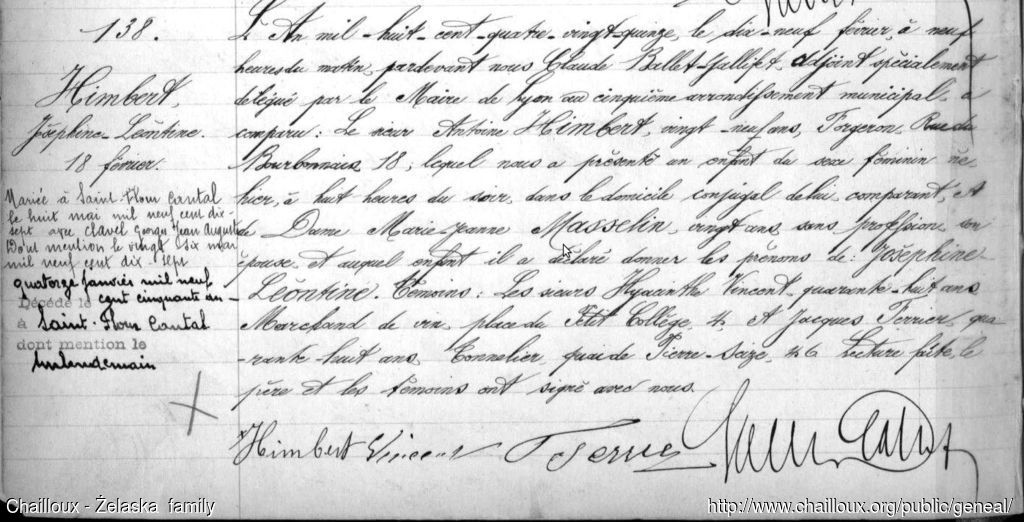 138.
Himbert,
Joséphine-Léontine.
18 février.
Mariée à Saint-Flour Cantal
le huit mai mil neuf cent dix-
sept avec Clavel Georges Jean Auguste
Dont mention le vingt six mai
mil neuf cent dix sept
quatorze janvier mil neuf
Décédé le cent cinquante un
à Saint-Flour Cantal
dont mention le
surlendemain
L'An mil-huit-cent-quatre-vingt-quinze, le dix-neuf février, à neuf
heures du matin, pardevant nous Claude Ballet-Gallifet, adjoint spécialement
délégué par le Maire de Lyon au cinquième arrondissement municipal, a
comparu: Le sieur Antoine Himbert, vingt-neuf ans, Forgeron, Rue du
Bourbonnais 18; lequel nous a présenté un enfant du sexe féminin né
hier, à huit heures du soir, dans le domicile conjugal de lui, comparant, et
de Dame Marie-Jeanne Masselin, vingt ans, sans profession, son
épouse, et auquel enfant il a déclaré donner les prénoms de: Joséphine-
Léontine. Témoins: Les sieurs Hyacinthe Vincent, quarante-huit ans,
Marchand de vin, place du Petit Collège, 4, et Jacques Terrier, qua-
-rante-huit ans, Tonnelier quai de Pierre-Scize, 26 Lecture faite, le
père et les témoins ont signé avec nous.
Himbert Vincent
Chailloux - Żelaska family
http://www.chailloux.org/public/geneal/